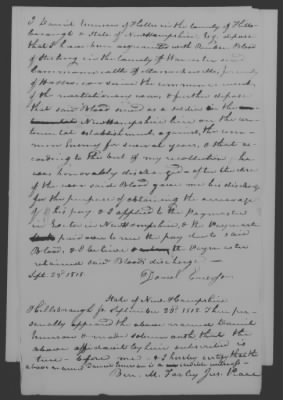 I Daniel Emerson of Hollis in the County of Hills-
borough & State of New Hampshire Esq. depose
that I have been acquainted with Reuben Blood
of Sterling in the County of Worcester and
Commonwealth of Massachusetts, formerly
of Hollis, ever since the commencement
of the revolutionary war, & further depose
that said Blood served as a soldier in the
New Hampshire line on the con-
tinental establishment, against the com-
mon Enemy for several years, & that ac-
cording to the best of my recollection he
was honorably discharged & after the close
of the war said Blood gave me his discharge
for the purpose of obtaining the arrearage
of his pay & I applied to the Paymaster
in Exeter in New Hampshire, & the Paymaster
paid over to me the pay due to said
Blood, & I believe the Paymaster
retained said Blood's discharge —
Sept. 23d 1818. Daniel Emerson
State of New Hampshire
Hillsborough ss September 23d 1818. Then per-
sonally appeared the above named Daniel
Emerson & made solemn oath that the
above affidavit by him subscribed is
true — before me — & I hereby certify that the
above named Daniel Emerson is a credible witness —
Ben. M. Farley Jus. Peace